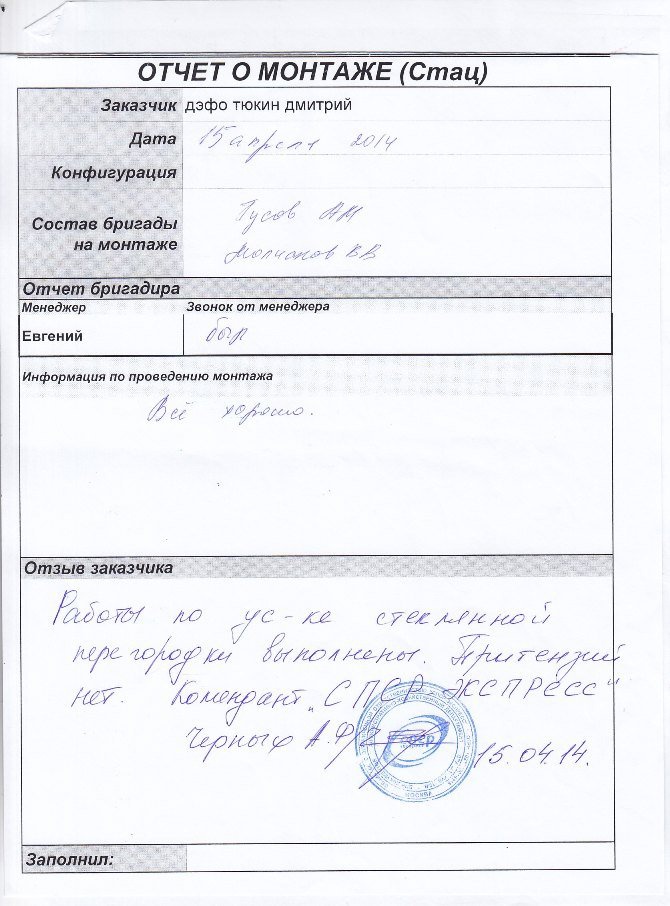 ОТЧЕТ О МОНТАЖЕ (Стац)
Заказчик дэфо тюкин дмитрий
Дата 15 апреля 2014
Конфигурация
Состав бригады на монтаже
Гусов АМ
Молчанов ВВ
Отчет бригадира
Менеджер Звонок от менеджера
Евгений был
Информация по проведению монтажа
Всё хорошо.
Отзыв заказчика
Работы по ус-ке стеклянной
перегородки выполнены. Притензий
нет. Комендант „СПСР ЭКСПРЕСС"
Черных А.Ф. 15.04.14.
Заполнил: